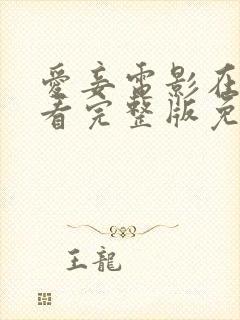 愛妾電影在
看完整版免
王龍